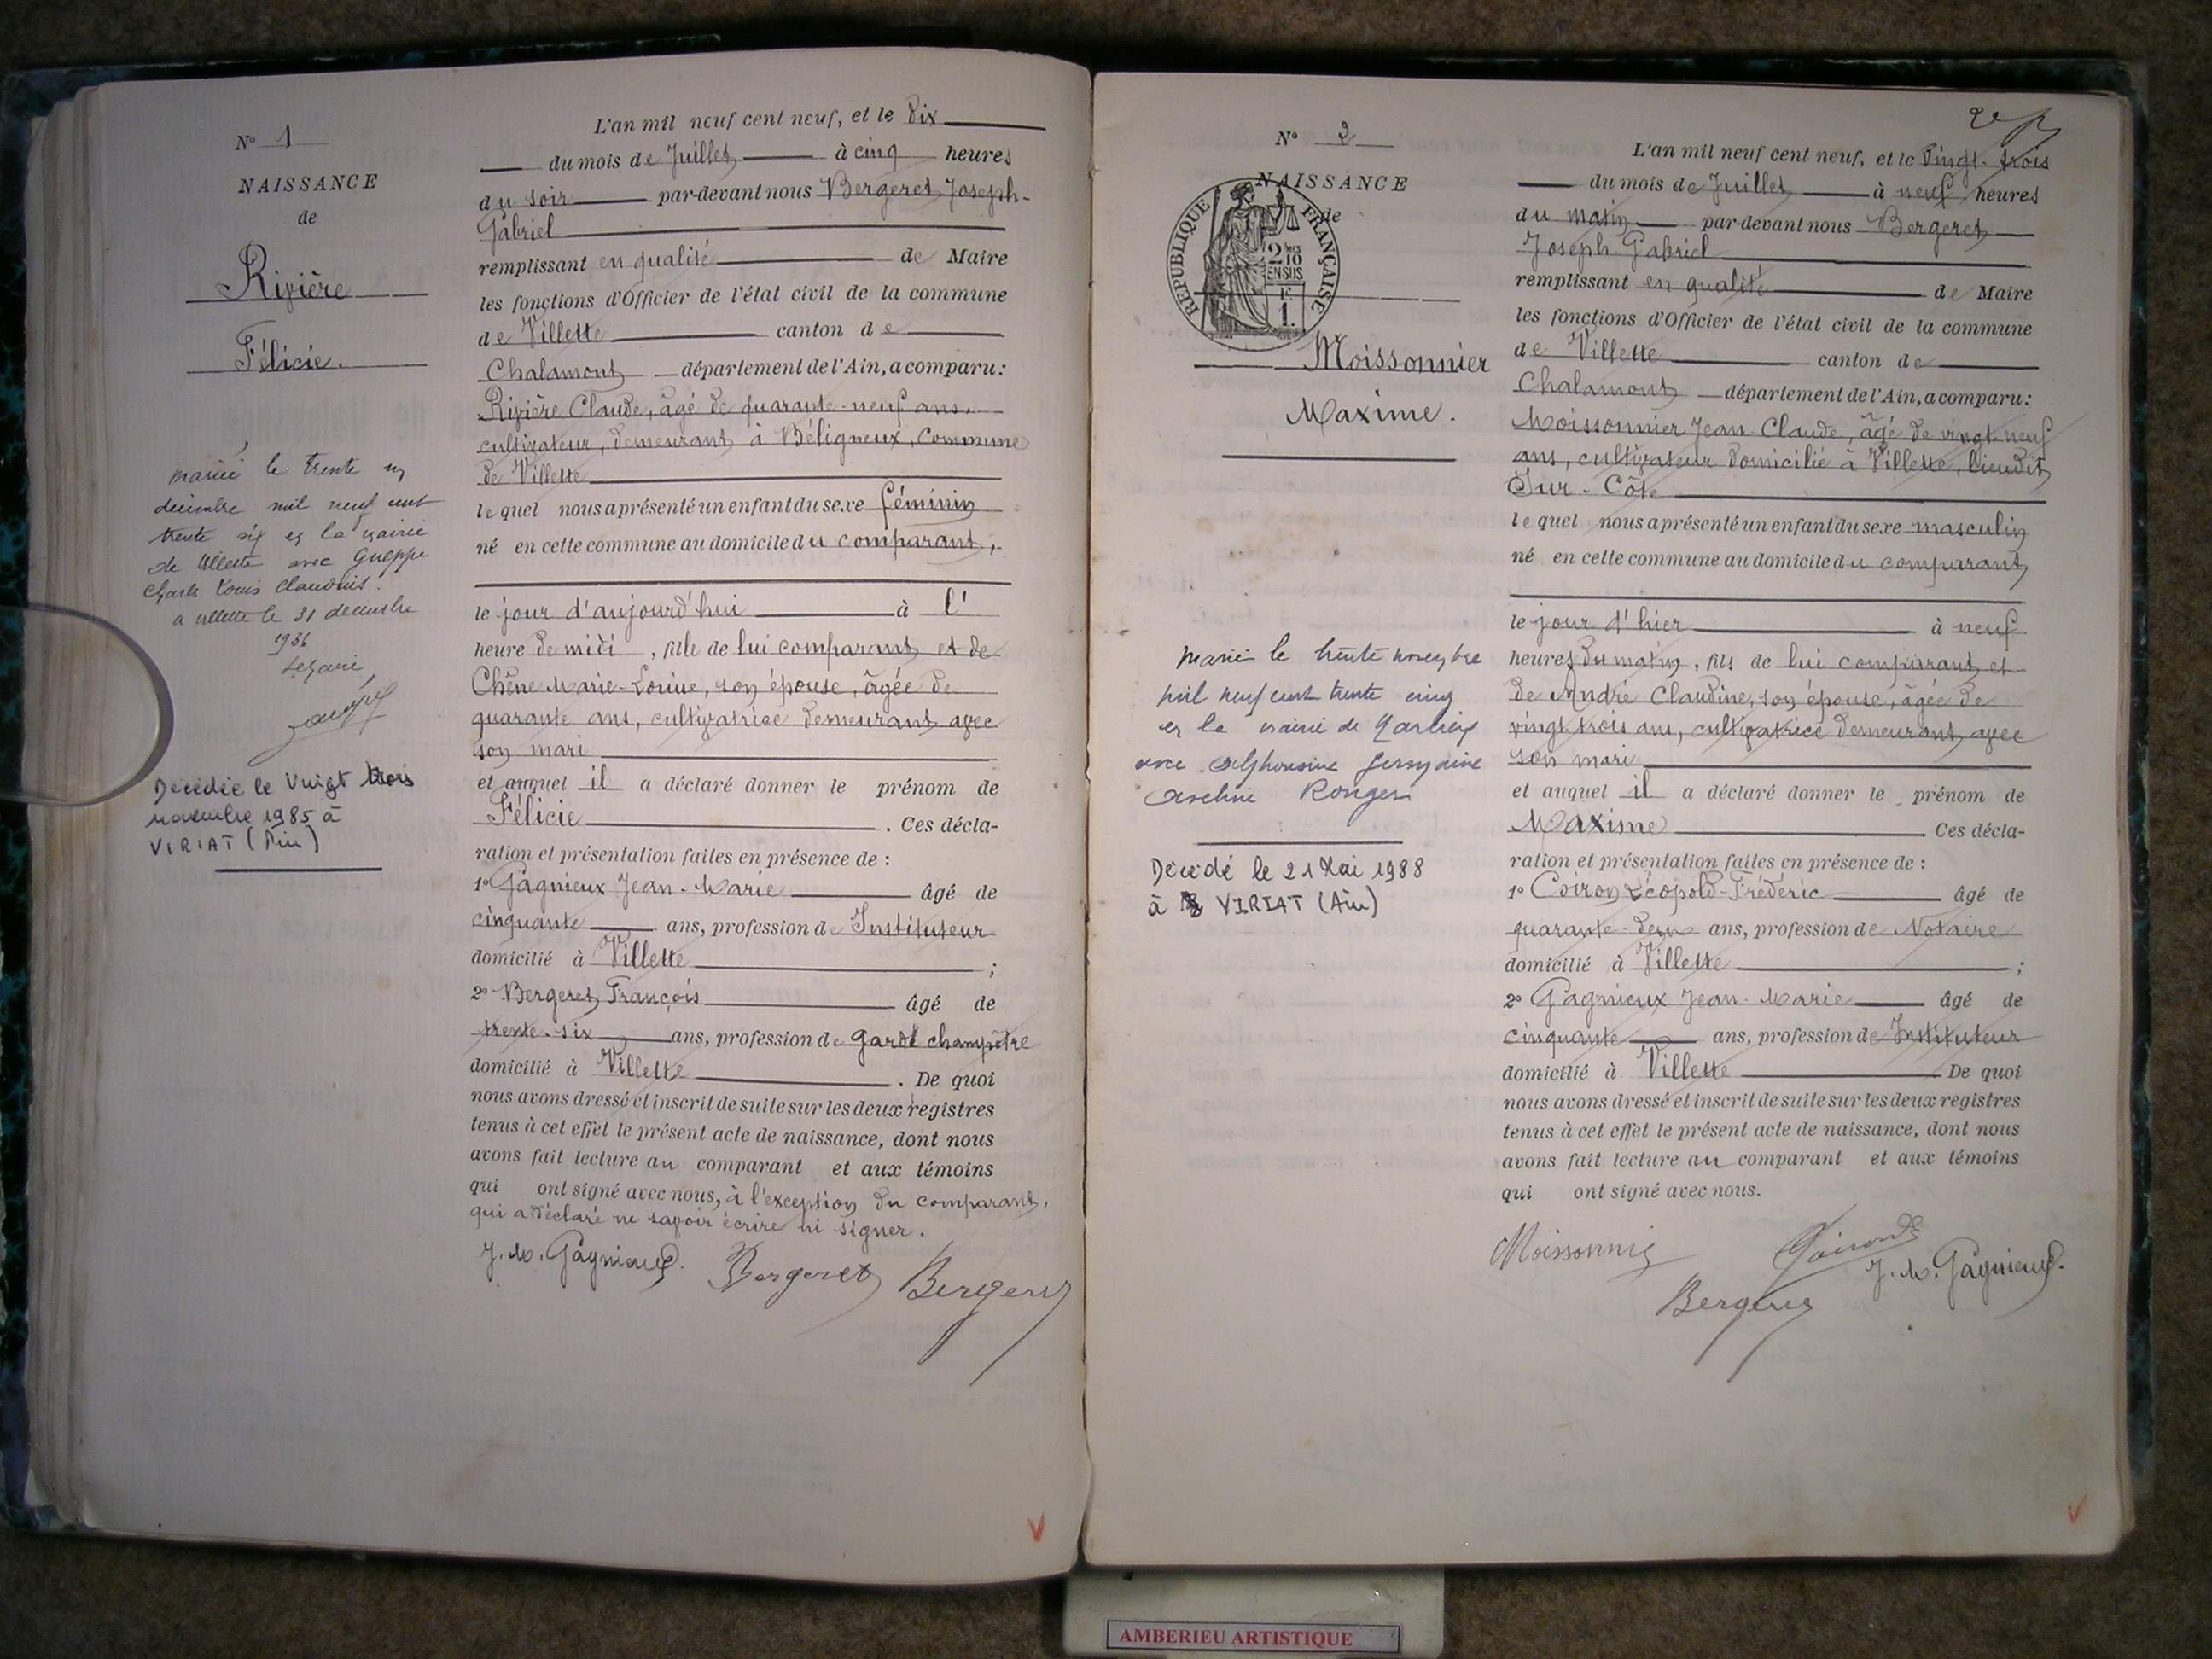 N° 1
NAISSANCE
de
Rivière
Félicie.
mariée le trente un
décembre mil neuf cent
trente six en la mairie
de Villette avec Gueppe
Charles Louis Claudius.
a villette le 31 decembre
1936
Le maire
Décédée le Vingt trois
novembre 1985 à
VIRIAT (Ain)
L'an mil neuf cent neuf, et le Dix
du mois de Juillet à cinq heures
du soir par-devant nous Bergeret Joseph-
Gabriel
remplissant en qualité de Maire
les fonctions d'Officier de l'état civil de la commune
de Villette canton de
Chalamont département de l'Ain, a comparu:
Rivière Claude, âgé de quarante-neuf ans,
cultivateur, demeurant à Béligneux, Commune
de Villette
lequel nous a présenté un enfant du sexe féminin
né en cette commune au domicile du comparant,
le jour d'aujourd'hui à l'
heure de midi, fille de lui comparant et de
Chêne Marie-Louise, son épouse, âgée de
quarante ans, cultivatrice demeurant avec
son mari
et auquel il a déclaré donner le prénom de
Félicie. Ces décla-
ration et présentation faites en présence de :
1° Gagnieux Jean-Marie âgé de
cinquante ans, profession de Instituteur
domicilié à Villette ;
2° Bergeret François âgé de
trente-six ans, profession de garde champêtre
domicilié à Villette. De quoi
nous avons dressé et inscrit de suite sur les deux registres
tenus à cet effet le présent acte de naissance, dont nous
avons fait lecture au comparant et aux témoins
qui ont signé avec nous, à l'exception du comparant,
qui a déclaré ne savoir écrire ni signer.
J. M. Gagnieux. Bergeret Bergeret
N° 2
NAISSANCE
de
RÉPUBLIQUE FRANÇAISE
2/10
EN SUS
F
1.
Moissonnier
Maxime.
Marié le trente novembre
mil neuf cent trente cinq
en la mairie de Marlieux
avec Alphonsine Germaine
Rongen
Décédé le 21 Mai 1988
à VIRIAT (Ain)
L'an mil neuf cent neuf, et le Vingt-trois
du mois de Juillet à neuf heures
du matin par-devant nous Bergeret
Joseph Gabriel
remplissant en qualité de Maire
les fonctions d'Officier de l'état civil de la commune
de Villette canton de
Chalamont département de l'Ain, a comparu:
Moissonnier Jean Claude, âgé de vingt-neuf
ans, cultivateur domicilié à Villette, lieudit
Sur-Côte
lequel nous a présenté un enfant du sexe masculin
né en cette commune au domicile du comparant
le jour d'hier à neuf
heures du matin, fils de lui comparant et
de André Claudine, son épouse, âgée de
vingt trois ans, cultivatrice demeurant avec
son mari
et auquel il a déclaré donner le prénom de
Maxime Ces décla-
ration et présentation faites en présence de :
1° Coiron Léopold-Frédéric âgé de
quarante-deux ans, profession de Notaire
domicilié à Villette ;
2° Gagnieux Jean-Marie âgé de
cinquante ans, profession de Instituteur
domicilié à Villette De quoi
nous avons dressé et inscrit de suite sur les deux registres
tenus à cet effet le présent acte de naissance, dont nous
avons fait lecture au comparant et aux témoins
qui ont signé avec nous.
Moissonnier Coiron
J. M. Gagnieux.
Bergeret
AMBERIEU ARTISTIQUE